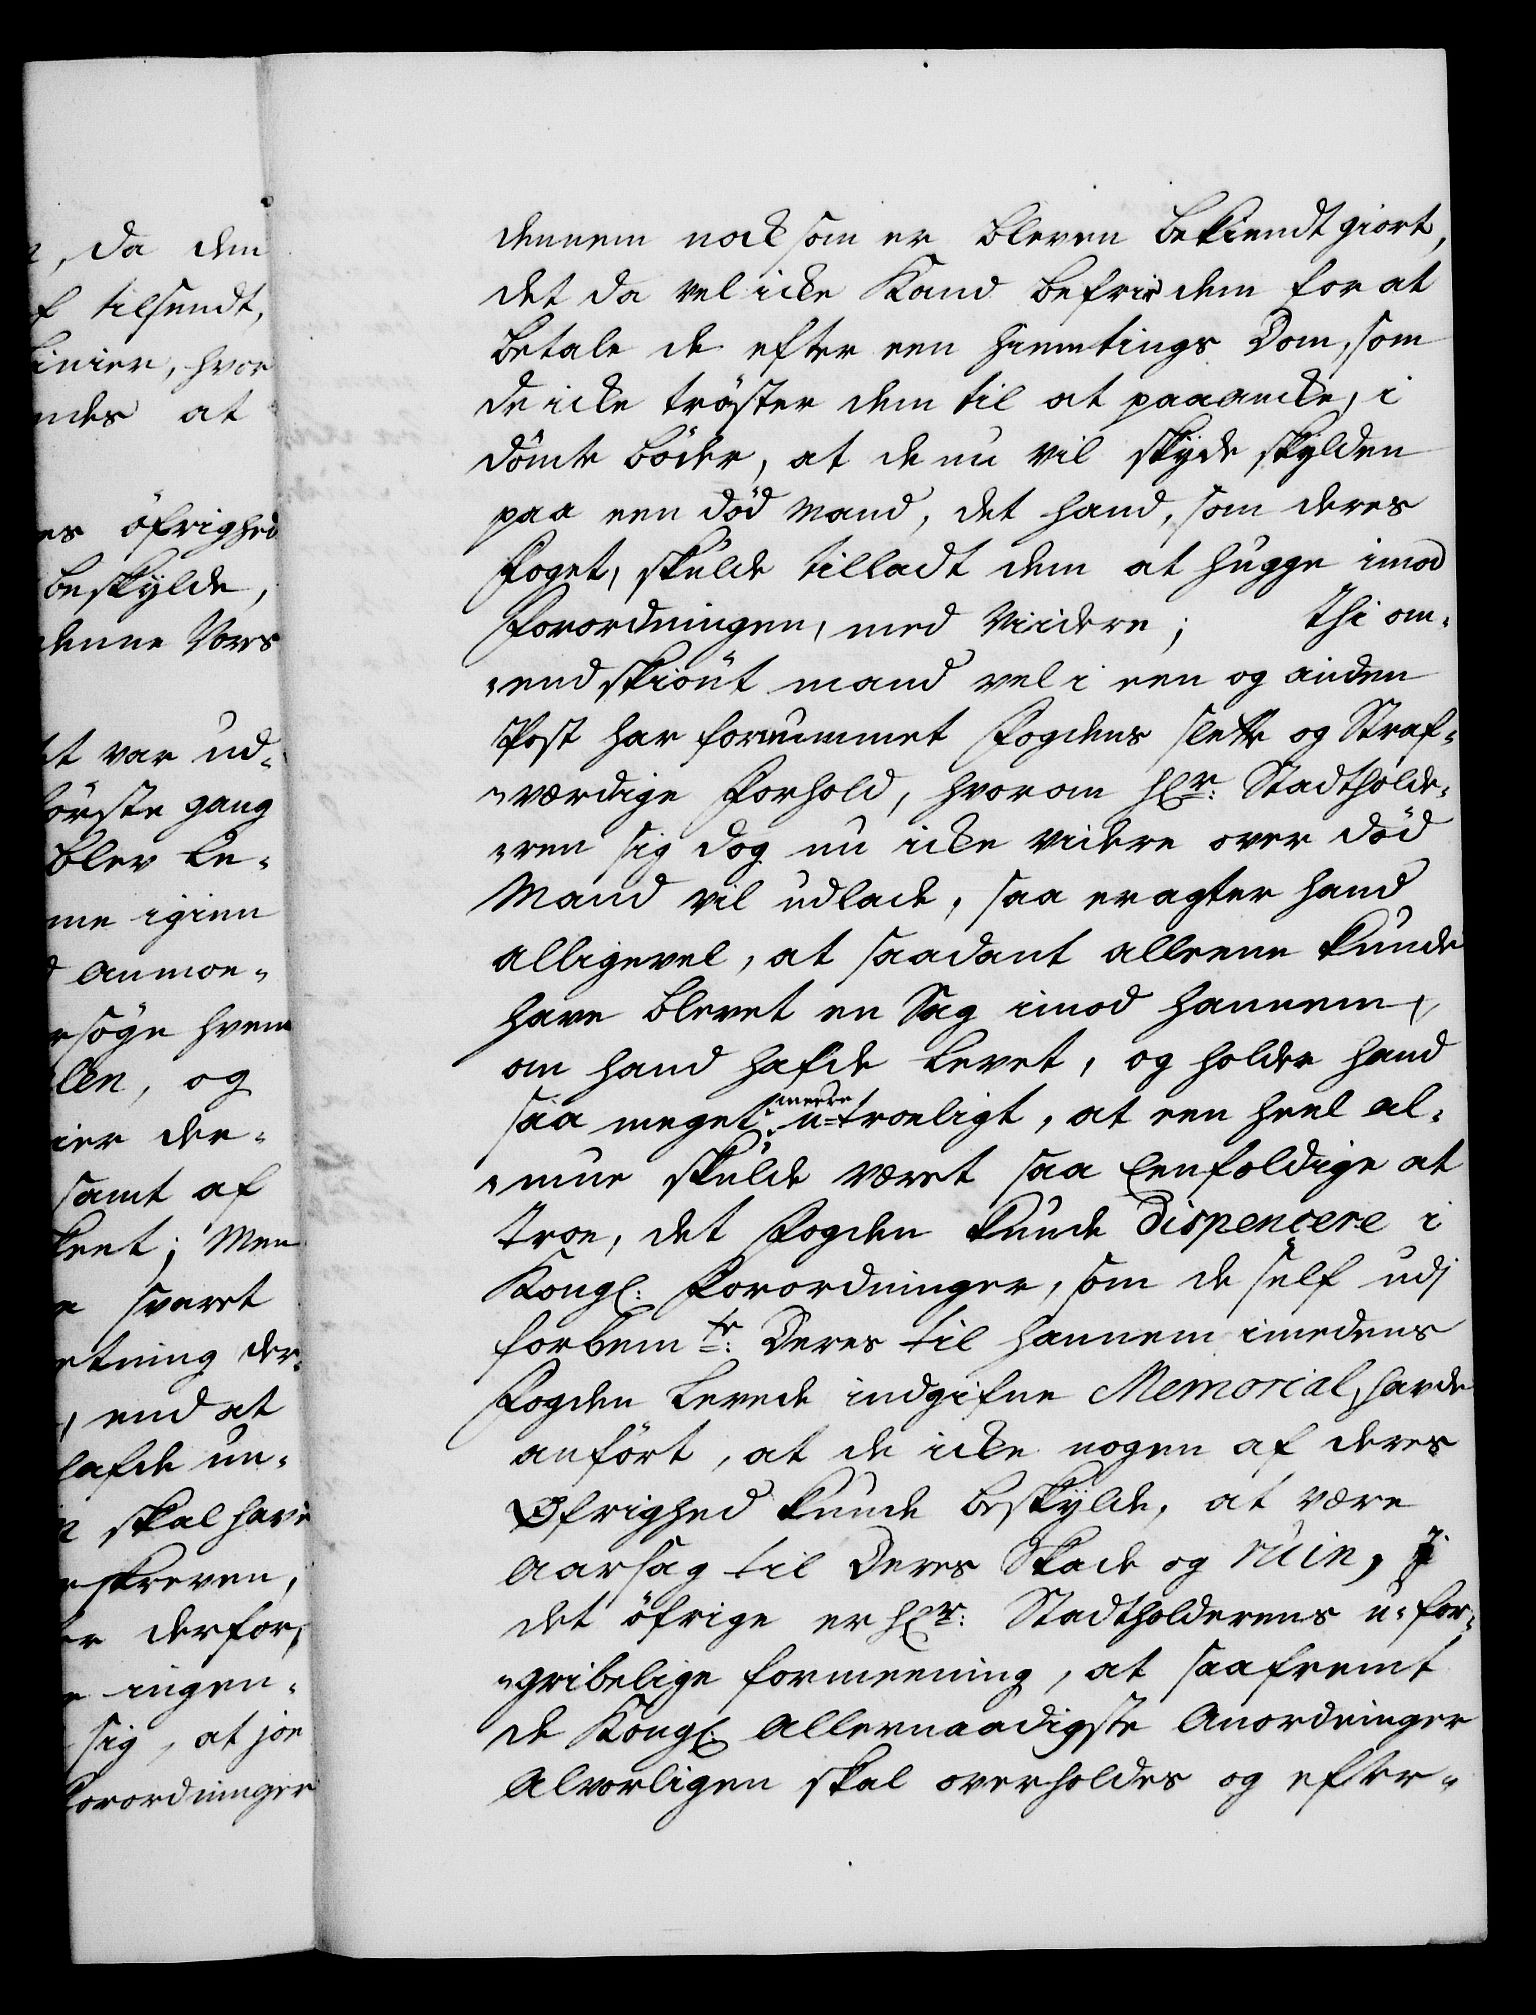 , da dem
f tilsendt,
Linier, hvor
ndes at
es öfrighed
beskylde,
denne Vores
t var ud-
förste gang
blev be-
me igien
d anmoe-
rsöge hvem
len, og
ier der-
samt af
kent; Men
e svaret
etning der-
, end at
lafde un-
n skal have
rskreven,
er derfor,
e ingen-
sig, at jon
forordninger
dennem nock som er bleven bekiendt giort,
det da vel icke Kand befrie dem for at
betale de efter een hiemtings Dom, som
de icke tröster dem til at paaancke, i
dömte böder, at de nu vil skyde skylden
paa een död Mand, det hand, som deres
foget, skulde tilladt dem at hugge imod
forordningen, med Viidere; Thi om-
-endskiönt mand vel i een og anden
Post har fornummet fogdens slette og Straf-
-værdige forhold, hvorom Hr: Stadtholde-
-ren sig dog nu icke videre over död
Mand vil udlade, saa eragter hand
alligevel, at saadant alleene kunde
have blevet en Sag imod hannem,
om hand hafde levet, og holder hand
saa meget meere u-troeligt, at een heel al-
-mue skulde været saa Eenfoldige at
troe, det fogden kunde Dispencere i
Kongl: forordninger, som de self udj
forbemte: Deres til hannem imedens
fogden levede indgifne Memorial, havde
anfört, at de icke nogen af deres
Øfrighed kunde beskylde, at være
aarsag til Deres Skade og ruin, J
det öfrige er Hr: Stadtholderens u-for-
-gribelige formeening, at saafremt
de Kongl: Allernaadigste Anordninger
Alvorligen skal overholdes og efter-